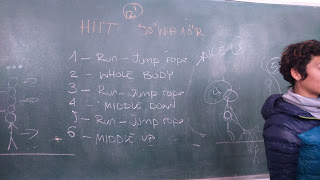 12'
HIIT 50"W 10"R
1 - RUN - JUMP ROPE
2 - WHOLE BODY
3 - RUN - JUMP ROPE
4 - MIDDLE DOWN
5 - RUN - JUMP ROPE
6 - MIDDLE UP